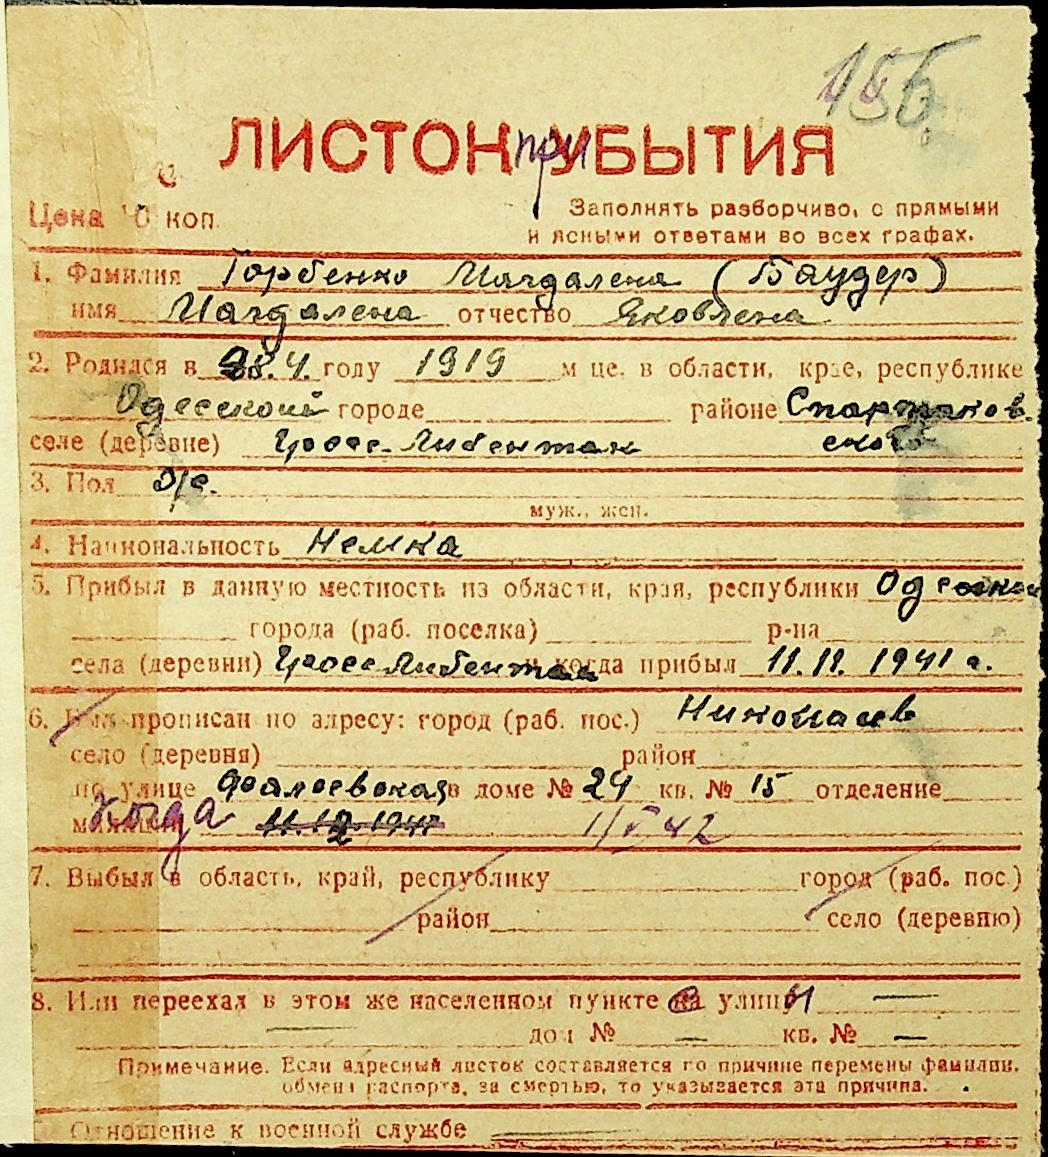 156
ЛИСТОК при УБЫТИЯ
Цена 10 коп.
Заполнять разборчиво, с прямыми
и ясными ответами во всех графах.
1. Фамилия Горбенко Магдалена (Баудер)
имя Магдалена отчество Яковлена
2. Родился в 28.4. году 1919 м це, в области, крае, республике
Одесской городе районе Спартаков.
селе (деревне) Гросс-Либенталь ского
3. Пол
муж., жен.
4. Национальность Немка
5. Прибыл в данную местность из области, края, республики Одесской
города (раб. поселка) р-на
села (деревни) Гросс Либенталь и когда прибыл 11.11. 1941 г.
6. Был прописан по адресу: город (раб. пос.) Николаев
село (деревня) район
по улице Фалеевская в доме № 24 кв. № 15 отделение
когда 11.12.1941 1/V 42
7. Выбыл в область, край, республику город (раб. пос.)
район село (деревню)
8. Или переехал в этом же населенном пункте с улицы —
— дом № — кв. № —
Примечание. Если адресный листок составляется по причине перемены фамилии,
обмена паспорта, за смертью, то указывается эта причина.
Отношение к военной службе —